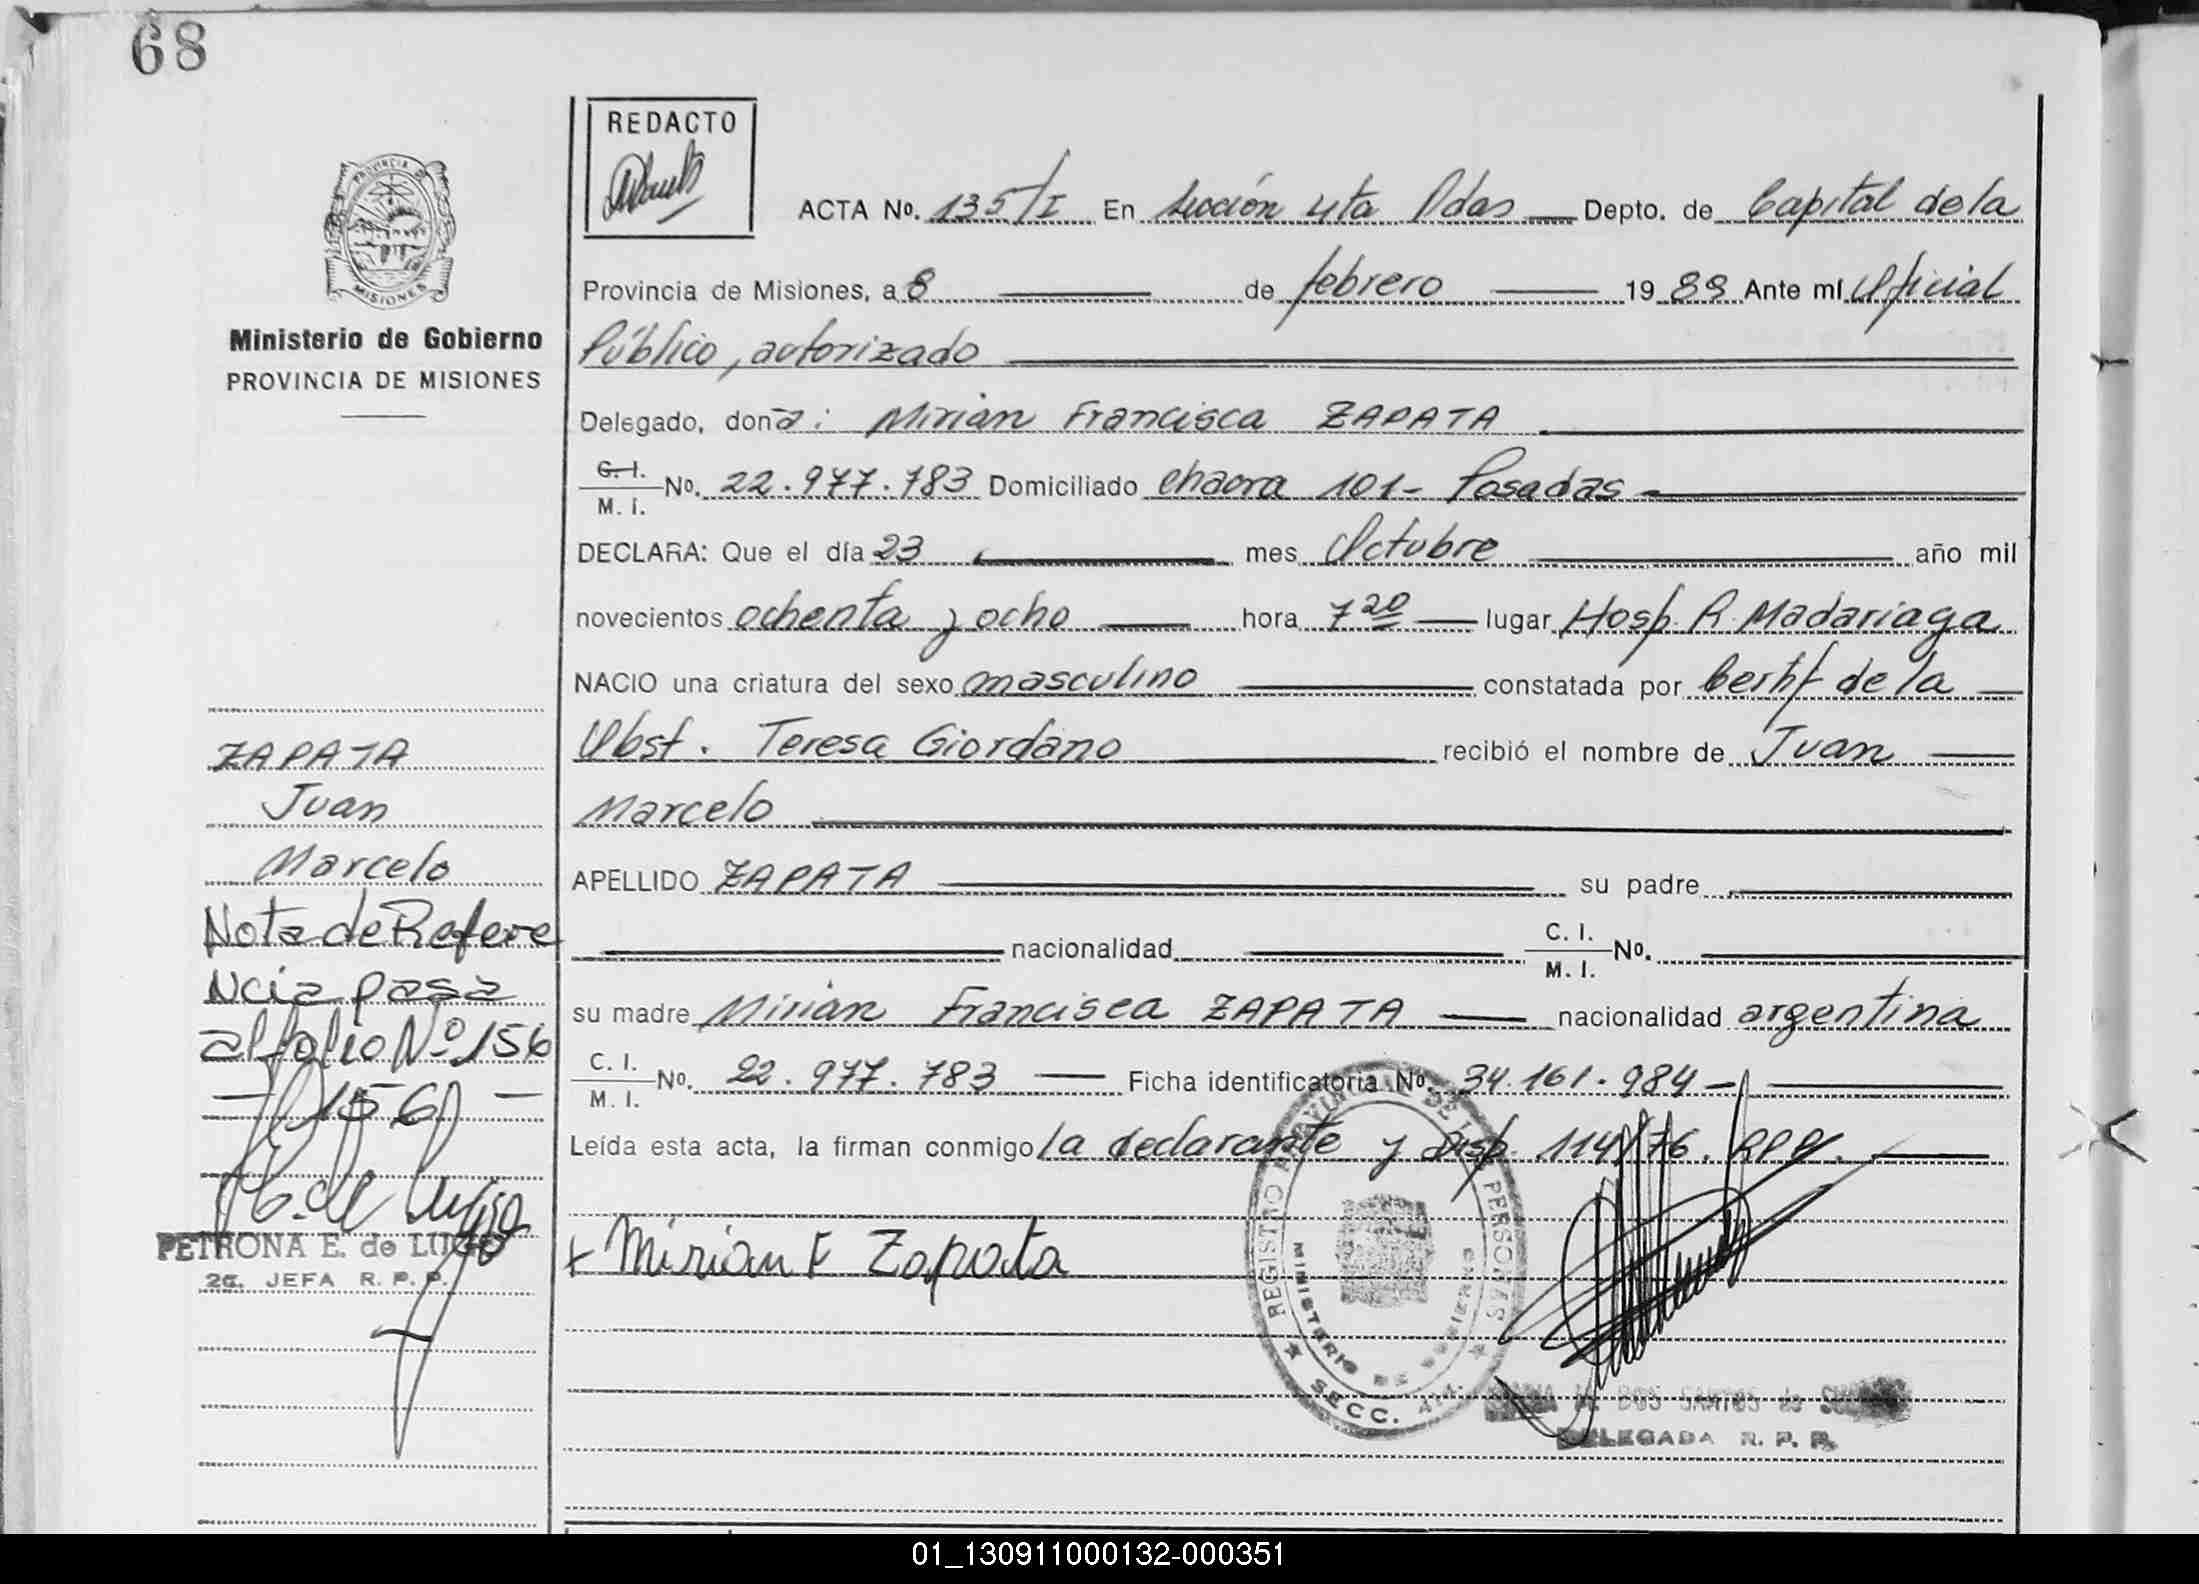 68
PROVINCIA DE
MISIONES
Ministerio de Gobierno
PROVINCIA DE MISIONES
REDACTO
ACTA No. 135/I En sección 4ta Pdas Depto. de Capital de la
Provincia de Misiones, a 8 de febrero 1989 Ante mí Oficial
Público, autorizado
Delegado, doña: Mirian Francisca ZAPATA
C. I.
M. I. No. 22.977.783 Domiciliado chacra 101- Posadas
DECLARA: Que el día 23 mes Octubre año mil
novecientos ochenta y ocho hora 7 20 lugar Hosp. R. Madariaga
NACIO una criatura del sexo masculino constatada por Certif de la
Obst. Teresa Giordano recibió el nombre de Juan
Marcelo
APELLIDO ZAPATA su padre
nacionalidad C. I.
M. I. No.
su madre Mirian Francisca ZAPATA nacionalidad argentina
C. I.
M. I. No. 22.977.783 Ficha identificatoria No. 34.161.984
Leída esta acta, la firman conmigo la declarante y Disp. 114/76. RPP.
x Mirian F Zapata
REGISTRO PROVINCIAL DE LAS PERSONAS
MINISTERIO DE GOBIERNO
SECC. 4ta.
DOS SANTOS de
DELEGADA R. P. P.
ZAPATA
Juan
Marcelo
Nota de Refere
Ncia pasa
al folio Nº 156
- 156 -
PETRONA E. de LUGO
2a. JEFA R. P. P.
01_130911000132-000351